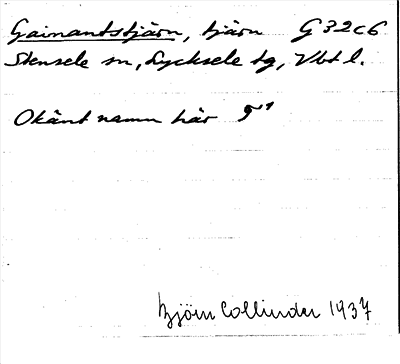 Gaimantstjärn, tjärn G 32 c 6
Stensele sn, Lycksele tg, Vbt l.
Okänt namn här
Björn Collinder 1937